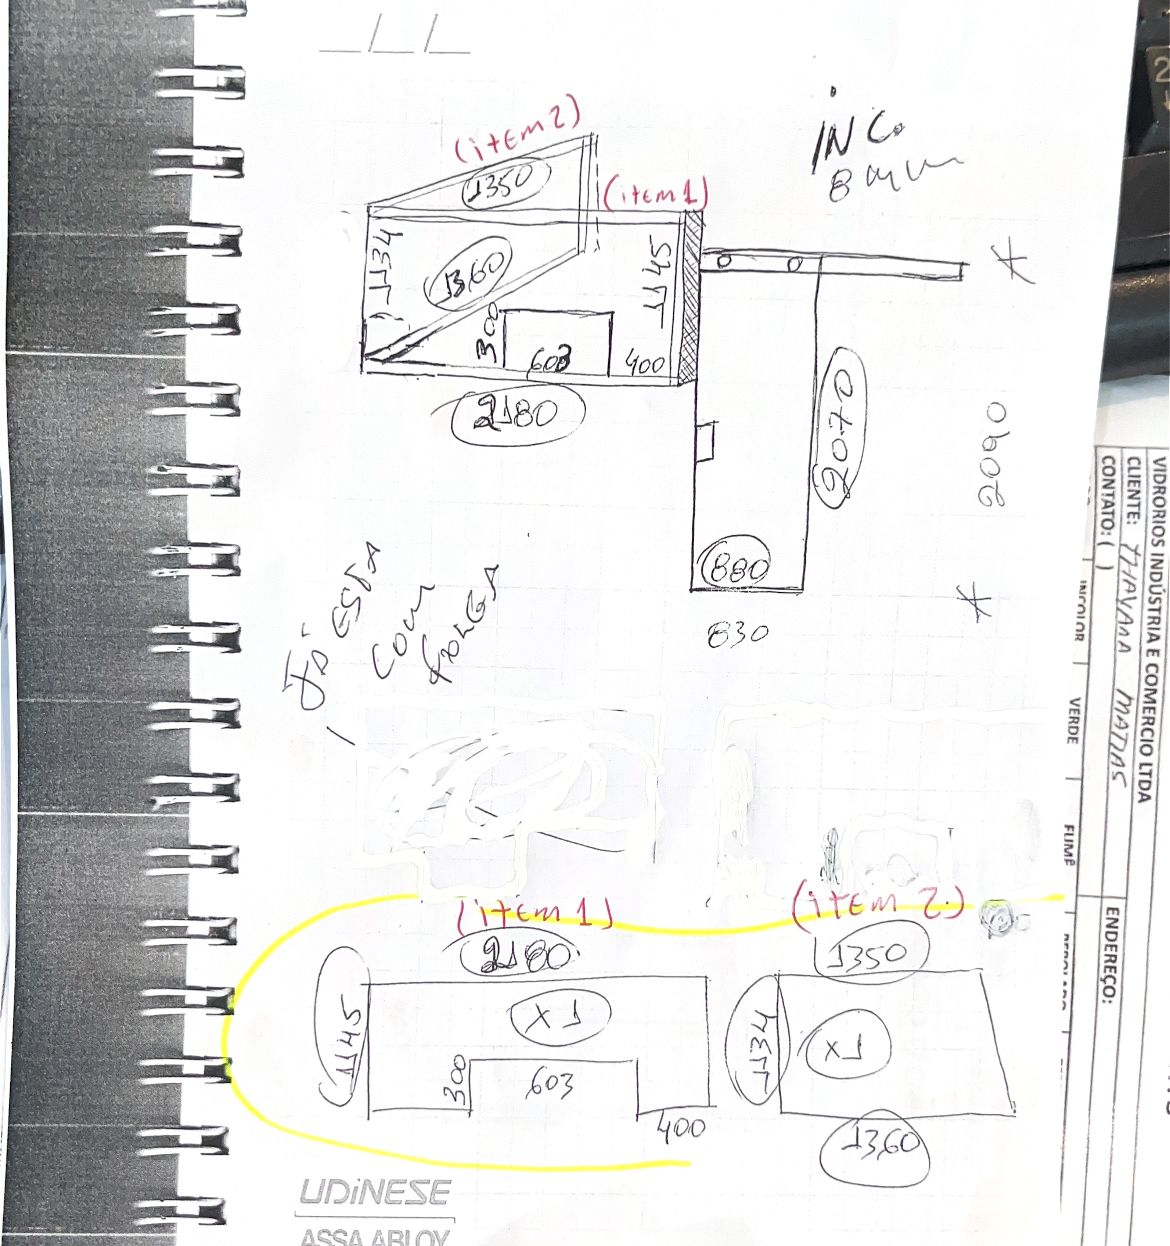 (item 2)
1350
(item 1)
INC.
8 mm
1134
1360
1145
300
603
400
2180
2070
2090
880
830
JÁ ESTÁ
COM
FOLGA
(item 1)
2180
1145
X1
300
603
400
(item 2)
1350
1134
X1
1360
UDINESE
ASSA ABLOY
VIDRORIOS INDÚSTRIA E COMERCIO LTDA
CLIENTE: THAYANA MATIAS
CONTATO: ( )
ENDEREÇO:
INCOLOR
VERDE
FUMÊ